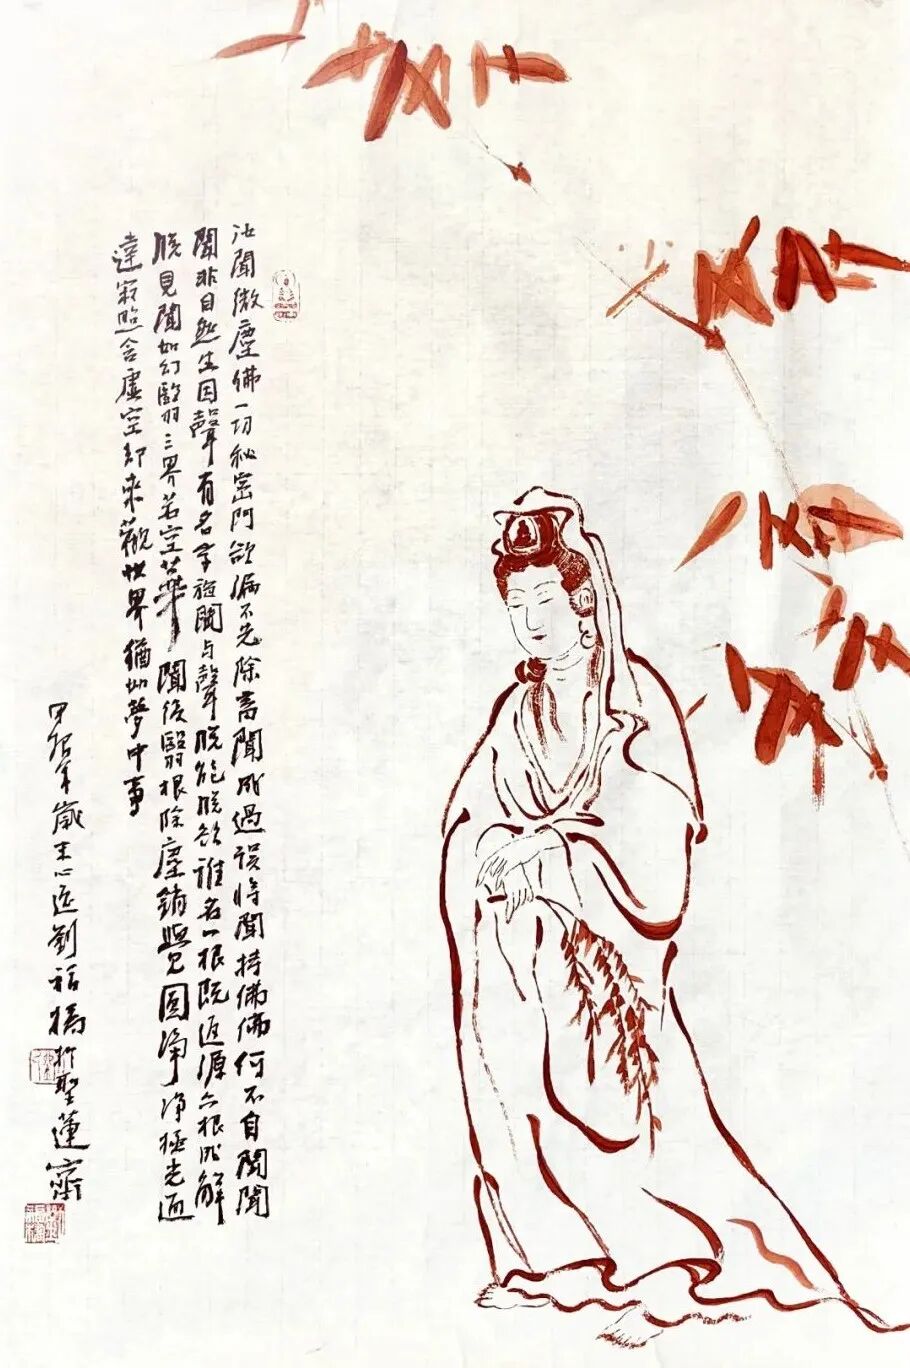 汝聞微塵佛一切秘密門欲漏不先除畜聞成過誤將聞持佛佛何不自聞聞
聞非自然生因聲有名字旋聞与聲脫能脫欲誰名一根既返源六根成解
脫見聞如幻翳三界若空華聞復翳根除塵銷覺圓净净極光通
達寂照含虛空却來觀世界猶如夢中事
甲辰年歲末心劉福橋於聖蓮齋